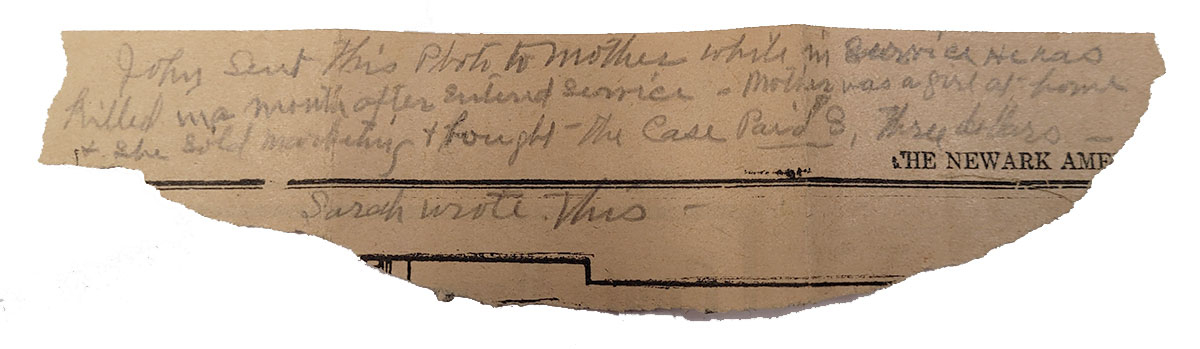 John Sent This Photo to Mother while in Service He was
killed in a month after Entered Service - Mother was a girl at home
& she sold marketing & bought - The Case Paid 3, Three dollars -
THE NEWARK AME
Sarah wrote This -